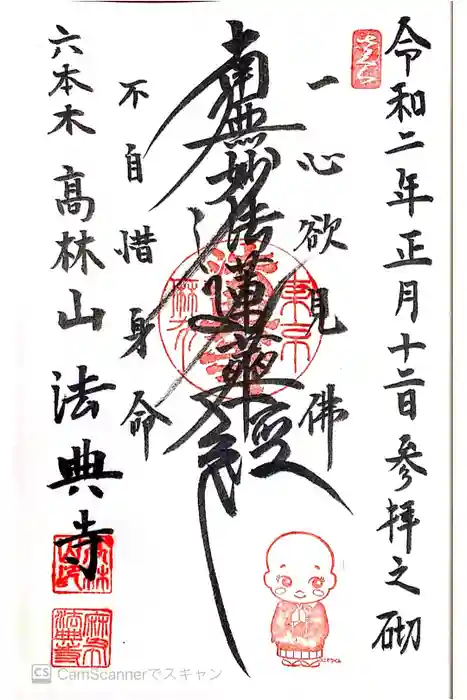 令和二年正月十二日参拝之砌
一心欲見佛
南無妙法蓮華経
不自惜身命
六本木 高林山 法典寺
CS CamScannerでスキャン